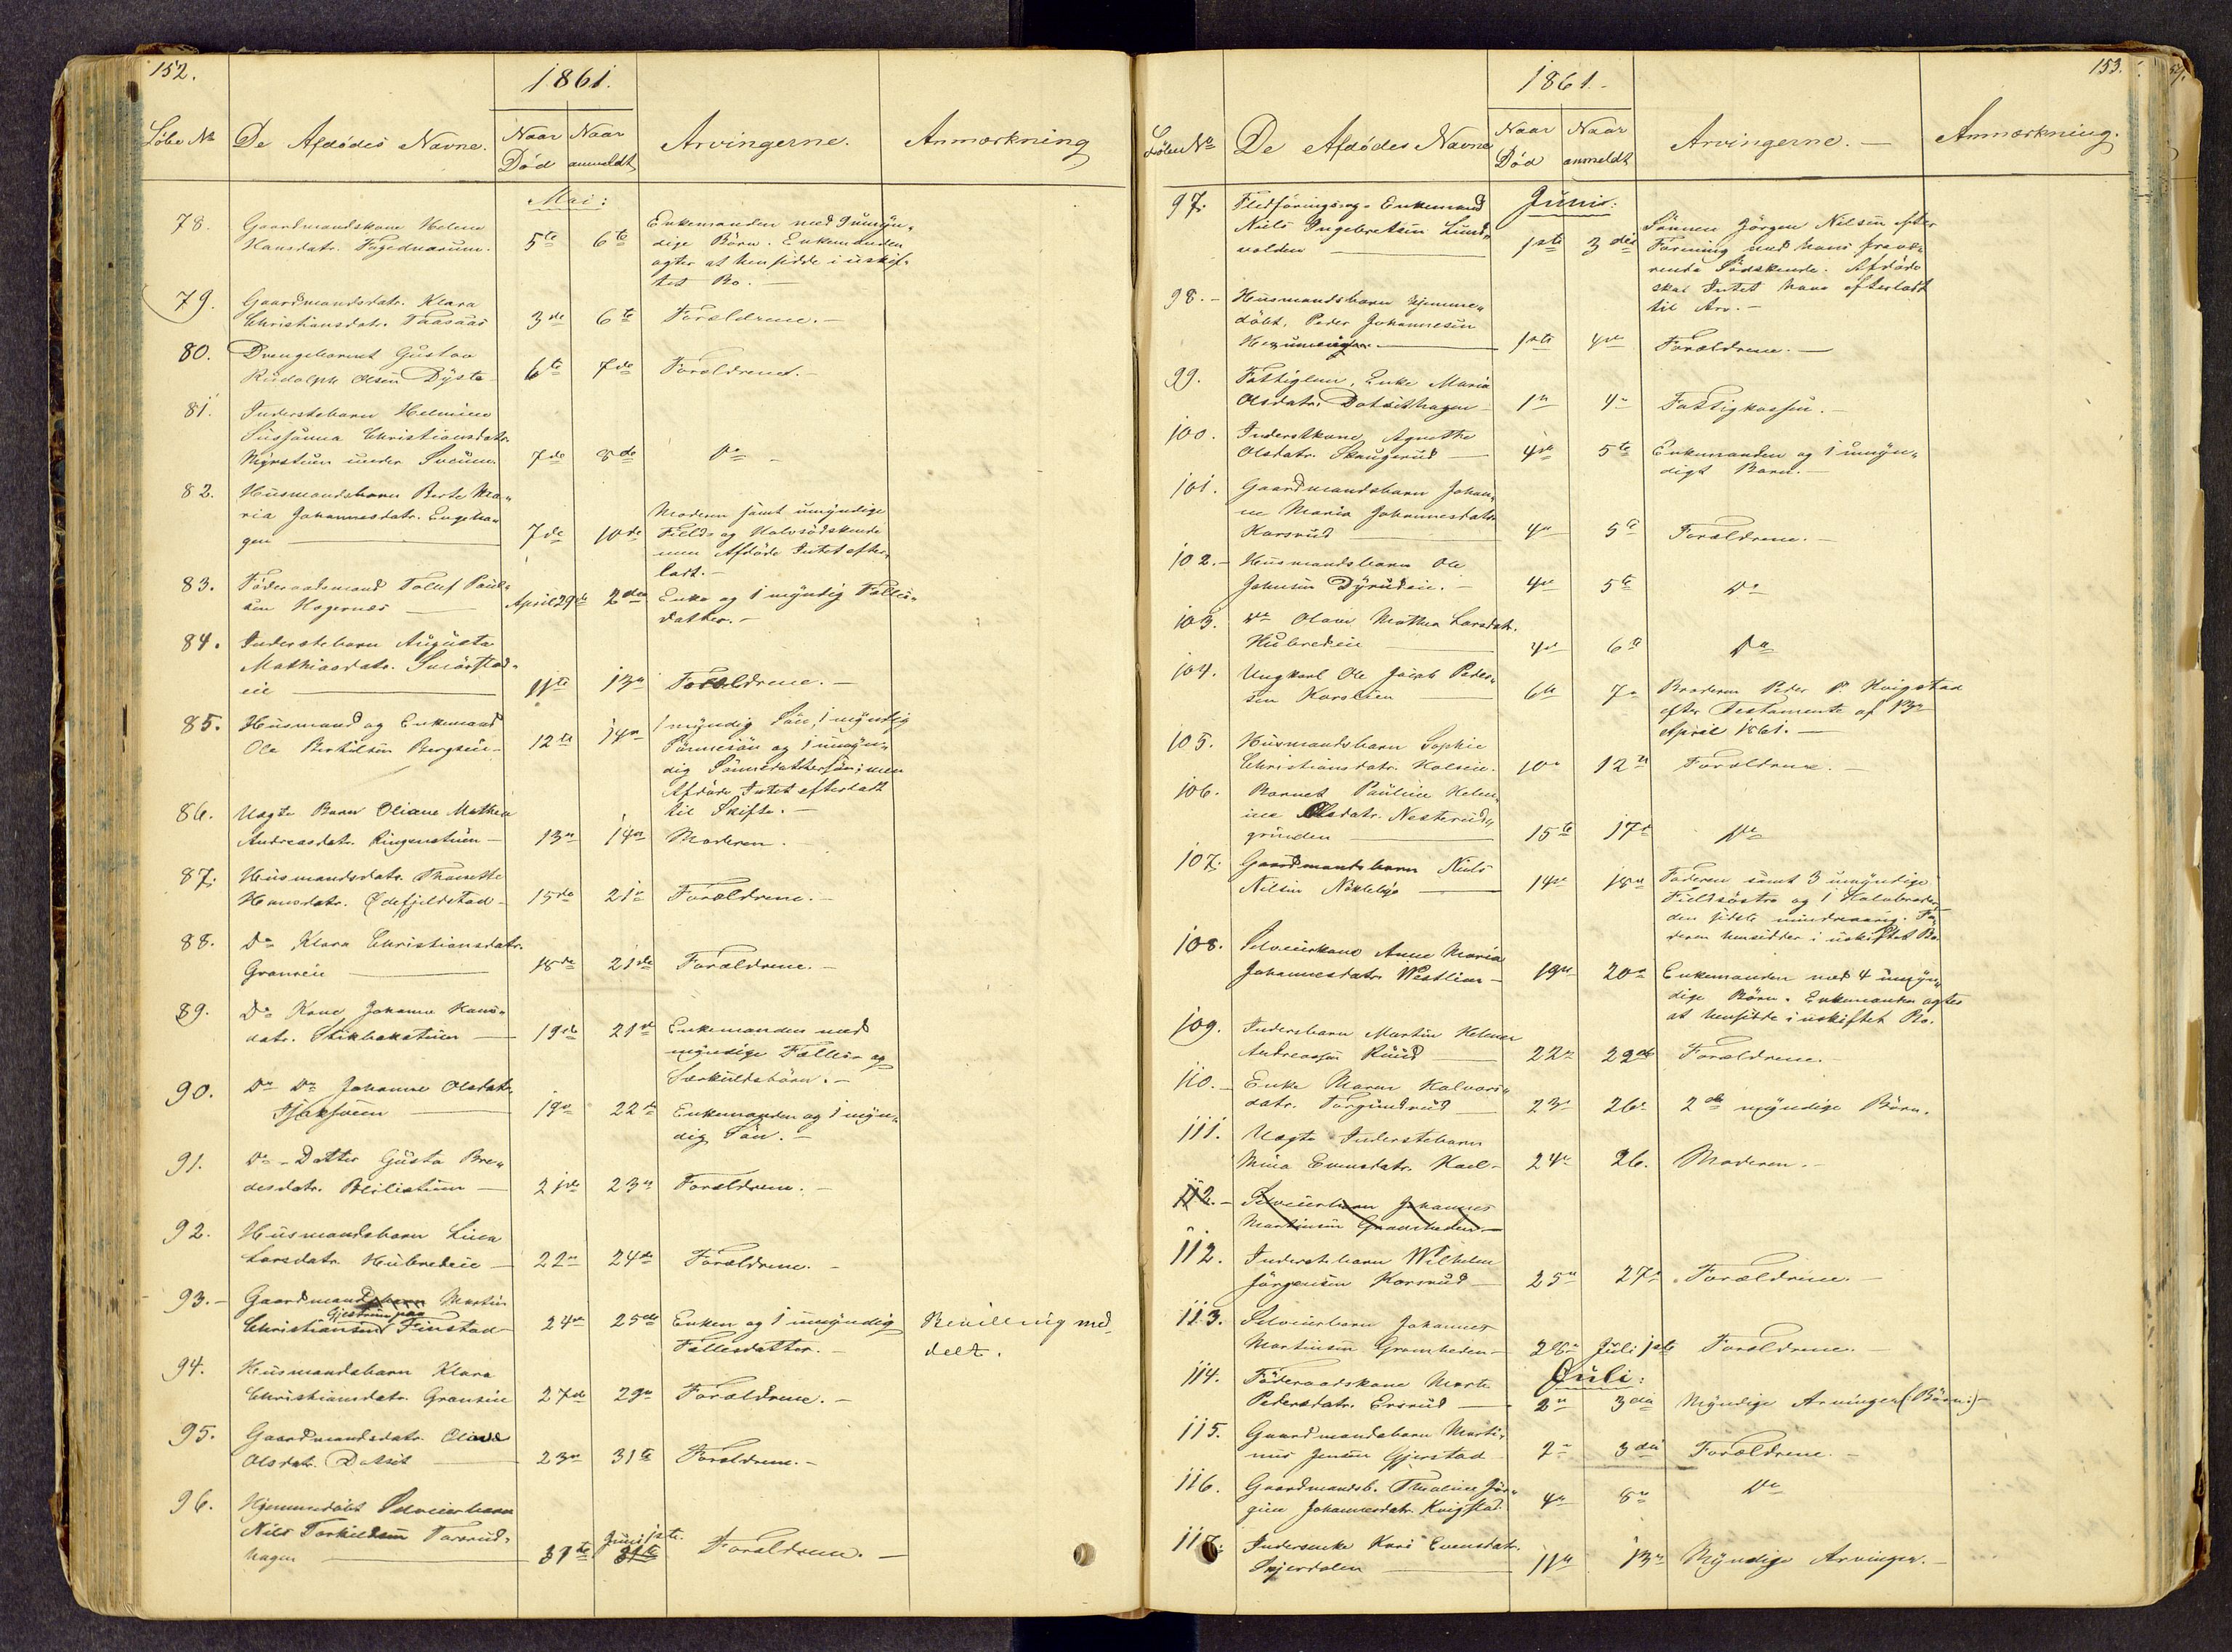 152.
1861.
Löbe No
De Afdödes Navne.
Naar Död
Naar anmeldt
Arvingerne.
Anmærkning
Mai:
78. Gaardmandskone Helene
Hansdatr. 5te 6te
Enkemanden med umyn„
dige Börn. Enkemanden
agter at hensidde i uskif„
tet Bo.
79. Gaardmandsdatr. Klara
Christiansdatr. Taasaas 3de 6te Forældrene.
80. Drengebarnet Gustav
Rudolph Olsen Dyste 6te 7de Forældrene.
81. Inderstebarn Helmine
Sussanna Christiansdatr.
under 7de 8de Do
82. Husmandsbarn Berte Ma„
ria Johannesdatr. Engeha„
gen 7de 10de
Moderen samt umyndige
Field- og Halvsödskende
men Afdöde Intet efter„
ladt.
83. Föderaadsmand Tollef Paul„
sen Hagernes April 29de 2den Enke og 1 myndig Fælles„
datter.
84. Inderstebarn Augusta
Mathiasdatr. Smörstad„
eie 11te 13n Forældrene.
85. Husmand og Enkemand
Ole Bertilsen Bergseie 12te 14n
1 myndig Sön, 1 myndig
Sönnesön og 1 umyn„
dig Sönnedattersön; men
Afdöde Intet efterladt
til Skifte.
86. Uægte Barn Oliane Mathea
Andreasdatr. Ringenstuen 13n 14n Moderen.
87. Husmandsdatr. Thorette
Hansdatr. Ödefjeldstad 15de 21n Forældrene.
88. Do Klara Christiansdatr.
Granseie 18de 21de Forældrene.
89. Do Kone Johanne Hans„
datr. Stikbakstuen 19de 21de Enkemanden med
myndige Fælles- og
Særkuldsbörn.
90. Do Do Johanne Olsdatr.
19n 22de Enkemanden og 1 myn„
dig Sön.
91. Do Datter Gusta Bre„
desdatr. 21de 23n Forældrene.
92. Husmandsbarn Lina
Larsdatr. Hubredeie 22n 24de Forældrene.
93. Gaardmand Martin
Gjestrum paa
Christiansen Finstad 24n 25de Enken og 1 umyndig
Fællesdatter.
Bevilling med„
deelt.
94. Husmandsbarn Klara
Christiansdatr. Granseie 27de 29n Forældrene.
95. Gaardmandsdatr. Olava
Olsdatr. Dotset 23n 31te Forældrene.
96. Hjemmedöbt Selveierbarn
Nils Torkildsen Torsrud„
hagen 31te Juni 1ste. Forældrene.
153.
1861.
Löbe No
De Afdödes Navne
Naar Död
Naar anmeldt
Arvingerne.
Anmærkning.
Juni:
97. Enkemand
Niels Ingebretsen Lund„
volden 1ste 3die
Sönnen Jörgen Nielsen efter
Forening med hans fravæ„
rende Södskende. Afdöde
skal Intet have efterladt
til Arv.
98. Husmandsbarn hjemme„
döbt, Peder Johannesen
1ste 4n Forældrene.
99. Fattiglem, Enke Maria
Olsdatr. Dotsethagen 1n 4n Fattigkassen.
100. Inderstkone Agnethe
Olsdatr. Skaugerud 4de 5te Enkemanden og 1 umyn„
digt Barn.
101. Gaardmandsbarn Johan„
ne Maria Johannesdatr.
Korsrud 4n 5te Forældrene.
102. Husmandsbarn Ole
Johnsen Dyrudeie. 4n 5te Do
103. Do Olava Mathea Larsdatr.
Hubredeie 4n 6te Do
104. Ungkarl Ole Jacob Peder„
sen 6te 7n Broderen Peder P. Kvigstad
efter Testamente af 13n
April 1861.
105. Husmandsbarn Sophie
Christiansdatr. Kolseie. 10n 12n Forældrene.
106. Barnet Pauline Helen„
ine Olsdatr. Nesterud„
grinden 15te 17n Do
107. Gaardmandsbarn Niels
Nilsen Nökleby 14n 18n
Faderen samt 3 umyndige
Fieldsöstre og 1 Halvbroder,
den sidste mindreaarig. Fa„
deren hensidder i uskiftet Bo.
108. Selveierkone Anne Maria
Johannesdatr. Westlien 19n 20n Enkemanden med 4 umyn„
dige Börn. Enkemanden agter
at hensidde i uskiftet Bo.
109. Indersbarn Martin Helmer
Andreassen Ruud 22n 22de Forældrene.
110. Enke Maren Halvors„
datr. Torgundrud 23n 26n 2de myndige Börn.
111. Uægte Inderstebarn
Mina Evensdatr. 24n 26. Moderen.
112. Selveierbarn Johannes
Martinsen Gramsheden.
112. Inderstebarn Wilhelm
Jörgensen Korsrud 25n 27n Forældrene.
113. Selveierbarn Johannes
Martinsen Gramheden 28n Juli 1ste Forældrene.
Juli:
114. Föderaadskone Marte
Pedersdatr. Ersrud 2n 3die Myndige Arvinger (Börn:)
115. Gaardmandsbarn Marti„
nus Jensen Gjerstad 2n 3die Forældrene.
116. Gaardmandsb. Thaline Jör„
gine Johannesdatr. Kvigstad. 4n 8n Do
117. Indersenke Kari Evensdatr.
Skjerdalen 11n 13n Myndige Arvinger.